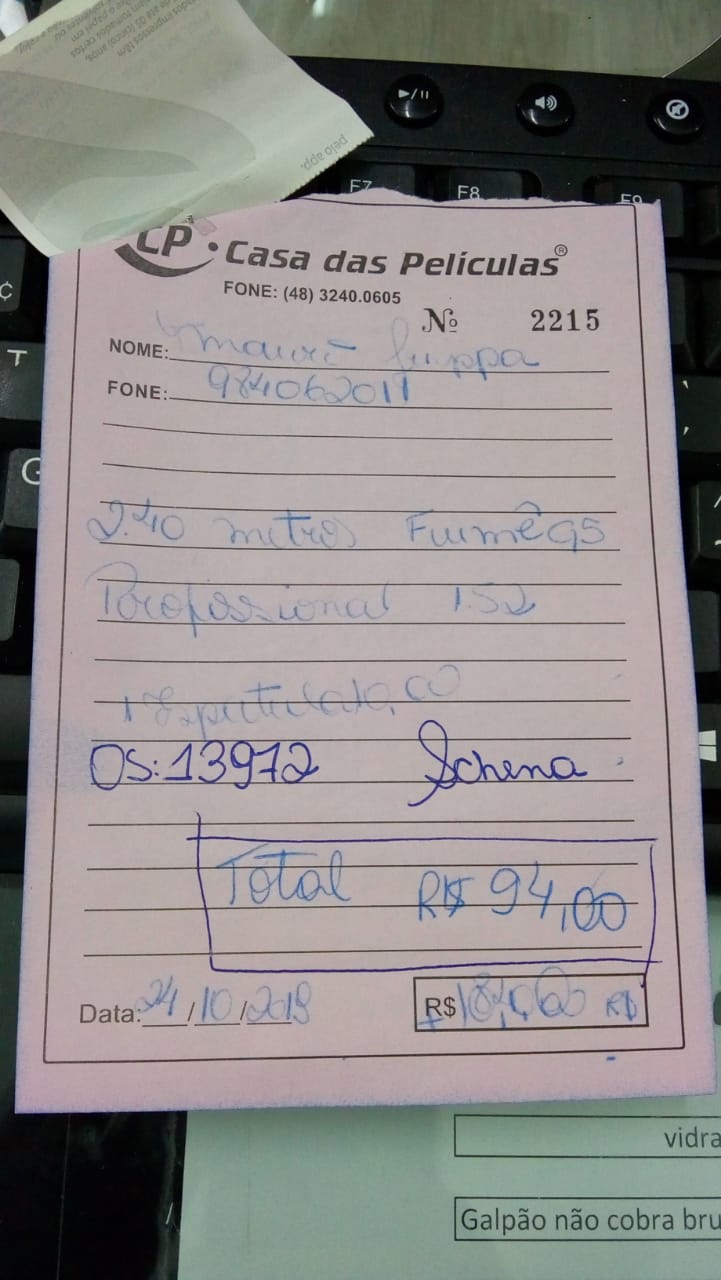 pelo app.
F7 F8 F9
CP • Casa das Películas®
FONE: (48) 3240.0605
Nº 2215
NOME:
FONE: 984062011
2.40 metros Fumê G5
Profissional 1.52
OS: 13972 Schena
Total R$ 94,00
Data: 24/10/2019 R$
T
G
vidra
Galpão não cobra bru